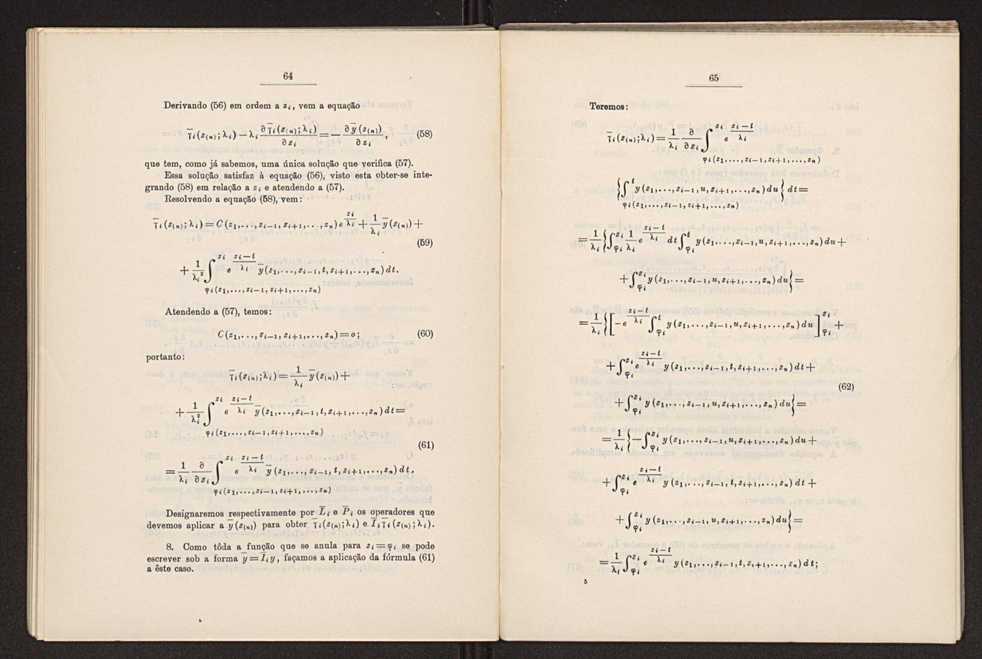 64
Derivando (56) em ordem a z_i, vem a equação
γ̄_i(z_(n); λ_i) − λ_i ∂γ̄_i(z_(n); λ_i)/∂z_i = − ∂ȳ(z_(n))/∂z_i, (58)
que tem, como já sabemos, uma única solução que verifica (57).
Essa solução satisfaz à equação (56), visto esta obter-se inte-
grando (58) em relação a z_i e atendendo a (57).
Resolvendo a equação (58), vem:
γ̄_i(z_(n); λ_i) = C(z_1,...,z_{i−1}, z_{i+1},...,z_n) e^{z_i/λ_i} + 1/λ_i ȳ(z_(n)) +
(59)
+ 1/λ_i² ∫_{φ_i(z_1,...,z_{i−1}, z_{i+1},...,z_n)}^{z_i} e^{(z_i−t)/λ_i} ȳ(z_1,...,z_{i−1}, t, z_{i+1},...,z_n) dt.
Atendendo a (57), temos:
C(z_1,...,z_{i−1}, z_{i+1},...,z_n) = o; (60)
portanto:
γ̄_i(z_(n); λ_i) = 1/λ_i ȳ(z_(n)) +
+ 1/λ_i² ∫_{φ_i(z_1,...,z_{i−1}, z_{i+1},...,z_n)}^{z_i} e^{(z_i−t)/λ_i} ȳ(z_1,...,z_{i−1}, t, z_{i+1},...,z_n) dt =
(61)
= 1/λ_i ∂/∂z_i ∫_{φ_i(z_1,...,z_{i−1}, z_{i+1},...,z_n)}^{z_i} e^{(z_i−t)/λ_i} ȳ(z_1,...,z_{i−1}, t, z_{i+1},...,z_n) dt.
Designaremos respectivamente por L̄_i e P̄_i os operadores que
devemos aplicar a ȳ(z_(n)) para obter γ̄_i(z_(n); λ_i) e Ī_i γ̄_i(z_(n); λ_i).
8. Como tôda a função que se anula para z_i = φ_i se pode
escrever sob a forma ȳ = Ī_i y, façamos a aplicação da fórmula (61)
a êste caso.
65
Teremos:
γ̄_i(z_(n); λ_i) = 1/λ_i ∂/∂z_i ∫_{φ_i(z_1,...,z_{i−1}, z_{i+1},...,z_n)}^{z_i} e^{(z_i−t)/λ_i}
{∫_{φ_i(z_1,...,z_{i−1}, z_{i+1},...,z_n)}^{t} y(z_1,...,z_{i−1}, u, z_{i+1},...,z_n) du} dt =
= 1/λ_i {∫_{φ_i}^{z_i} 1/λ_i e^{(z_i−t)/λ_i} dt ∫_{φ_i}^{t} y(z_1,...,z_{i−1}, u, z_{i+1},...,z_n) du +
+ ∫_{φ_i}^{z_i} y(z_1,...,z_{i−1}, u, z_{i+1},...,z_n) du} =
= 1/λ_i {[−e^{(z_i−t)/λ_i} ∫_{φ_i}^{t} y(z_1,...,z_{i−1}, u, z_{i+1},...,z_n) du]_{φ_i}^{z_i} +
+ ∫_{φ_i}^{z_i} e^{(z_i−t)/λ_i} y(z_1,...,z_{i−1}, t, z_{i+1},...,z_n) dt +
(62)
+ ∫_{φ_i}^{z_i} y(z_1,...,z_{i−1}, u, z_{i+1},...,z_n) du} =
= 1/λ_i {−∫_{φ_i}^{z_i} y(z_1,...,z_{i−1}, u, z_{i+1},...,z_n) du +
+ ∫_{φ_i}^{z_i} e^{(z_i−t)/λ_i} y(z_1,...,z_{i−1}, t, z_{i+1},...,z_n) dt +
+ ∫_{φ_i}^{z_i} y(z_1,...,z_{i−1}, u, z_{i+1},...,z_n) du} =
= 1/λ_i ∫_{φ_i}^{z_i} e^{(z_i−t)/λ_i} y(z_1,...,z_{i−1}, t, z_{i+1},...,z_n) dt;
5